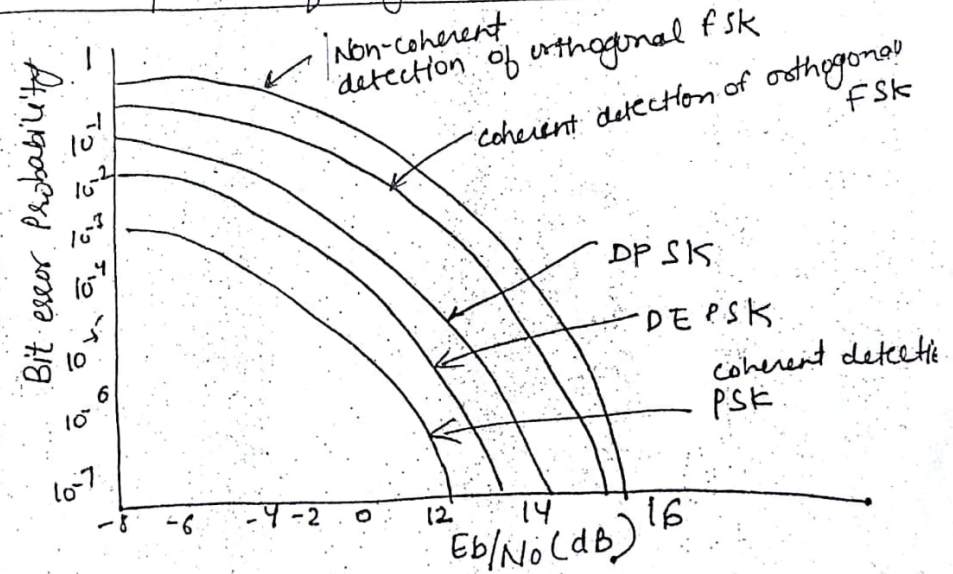 Non-coherent
detection of orthogonal fSK
coherent detection of orthogonal
FSK
DPSK
DEPSK
coherent detectic
PSK
Bit error Probability
1
10-1
10-2
10-3
10-4
10-5
10-6
10-7
-8 -6 -4 -2 0 12 14 16
Eb/No (dB)